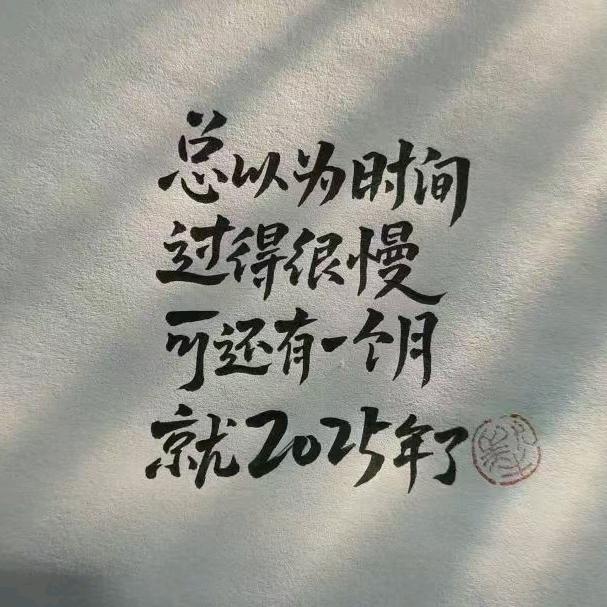 总以为时间
过得很慢
可还有一个月
就2025年了